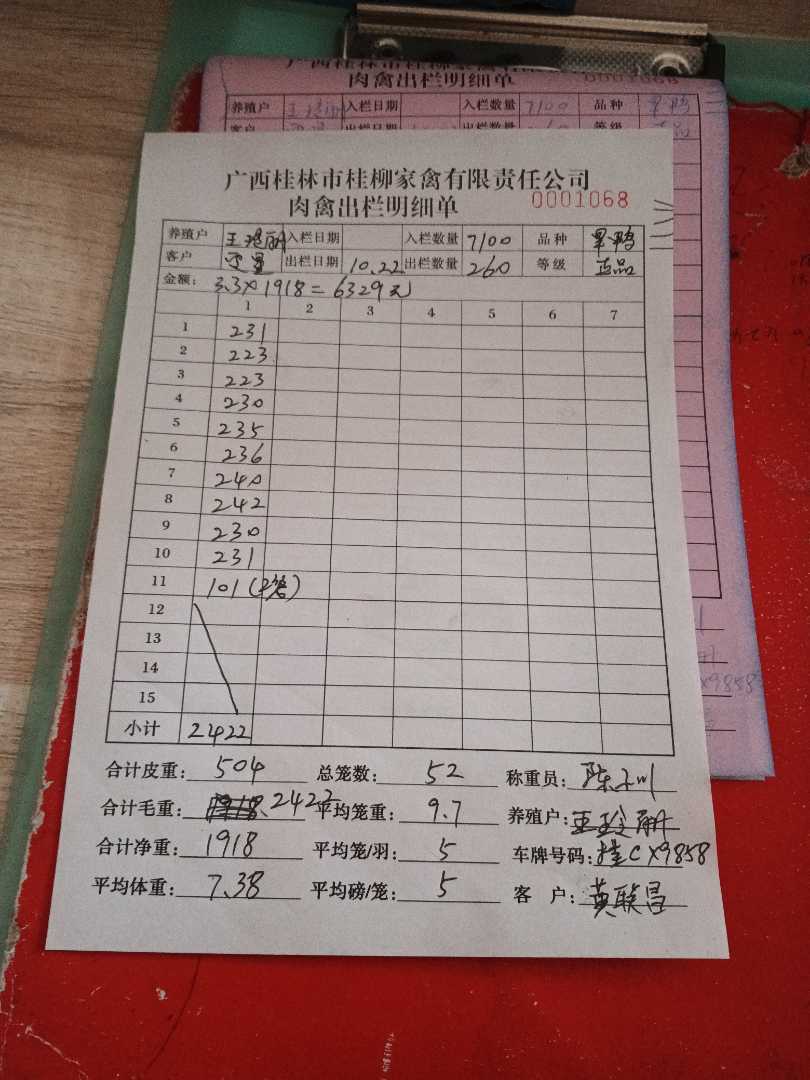 肉禽出栏明细单 0001068
养殖户 入栏日期 入栏数量 7100 品种
广西桂林市桂柳家禽有限责任公司
肉禽出栏明细单 0001068
养殖户 王玲丽 入栏日期 入栏数量 7100 品种 果鸭
客户 出栏日期 10.22 出栏数量 260 等级 正品
金额: 3.3×1918=6329元
1 2 3 4 5 6 7
1 231
2 223
3 223
4 230
5 235
6 236
7 240
8 242
9 230
10 231
11 101
12
13
14
15
小计 2422
合计皮重: 504 总笼数: 52 称重员:
合计毛重: 2422 平均笼重: 9.7 养殖户: 王玲丽
合计净重: 1918 平均笼/羽: 5 车牌号码: 桂CX9858
平均体重: 7.38 平均磅/笼: 5 客 户: 黄联昌
X9858